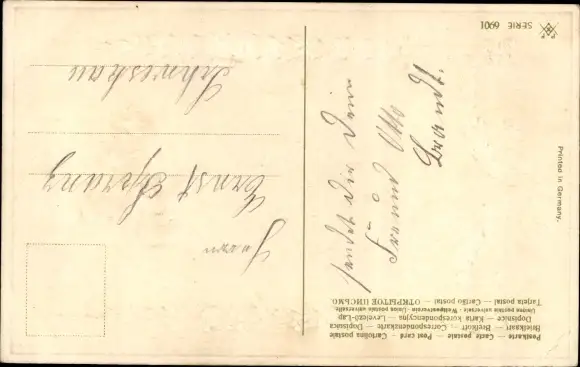 Postkarte — Carte postale — Post card — Cartolina postale
Briefkaart — Brefkort — Correspondenzkarte — Dopisnica
Dopisnice — Karta korespondencyjna — Levelező-Lap
Unione postale universale - Weltpostverein - Union postale universelle
Tarjeta postal — Cartão postal — ОТКРЫТОЕ ПИСЬМО
sendet dir dein
Freund Otto
Brandt.
Herrn
Ernst Sprang
SERIE 6901
Printed in Germany.